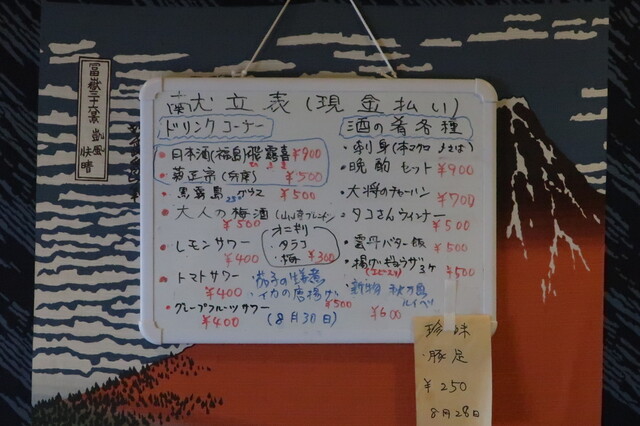 冨嶽三十六景 凱風
快晴
献立表(現金払い)
ドリンクコーナー
日本酒(福島)飛露喜 ¥900
菊正宗(兵庫) ¥500
黒霧島 グラス ¥500
大人の梅酒
¥500
レモンサワー
¥400
トマトサワー
¥400
グレープフルーツサワー
¥400
オニギリ
・タラコ
・梅 ¥300
・茄子の生姜煮
・イカの唐揚げ
¥500
(8月30日)
酒の肴各種
・刺身(本マグロ
・晩酌セット ¥900
・大将のチャーハン
¥700
・タコさんウィンナー
¥500
・雲丹バター飯
¥500
・揚げギョウザ3ヶ
¥500
・新物 秋刀魚
ルイベ
¥600
珍味
・豚足
¥250
8月28日